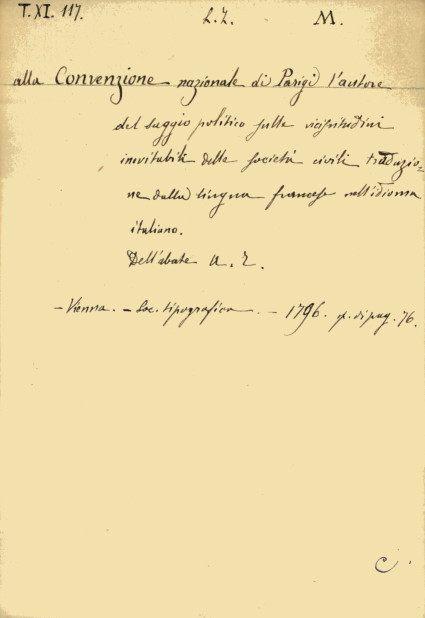 T. XI. 117. L. Z. M.
alla Convenzione nazionale di Parigi l'autore
del saggio politico sulle vicissitudini
inevitabili delle società civili traduzio-
ne dalla lingua francese nell'idioma
italiano.
Dell'abate A. Z.
- Vienna. - Soc. tipografica. - 1796. di pag. 76.
C.